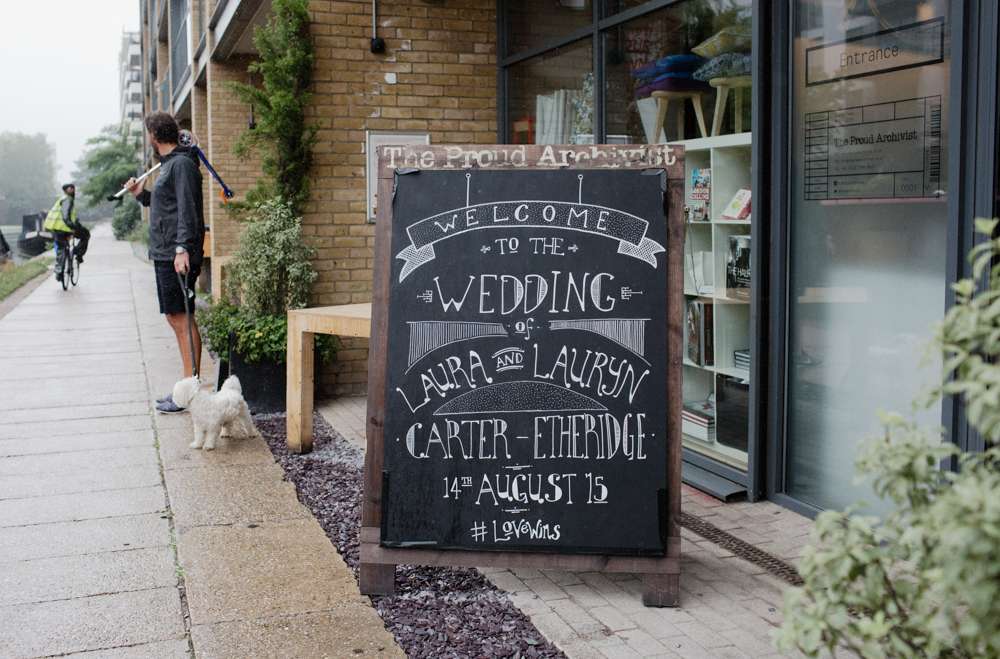 Entrance
The Proud Archivist
0001
The Proud Archivist
WELCOME
TO THE
WEDDING
of
LAURA AND LAURYN
CARTER-ETHERIDGE
14TH AUGUST 15
#LOVEWINS